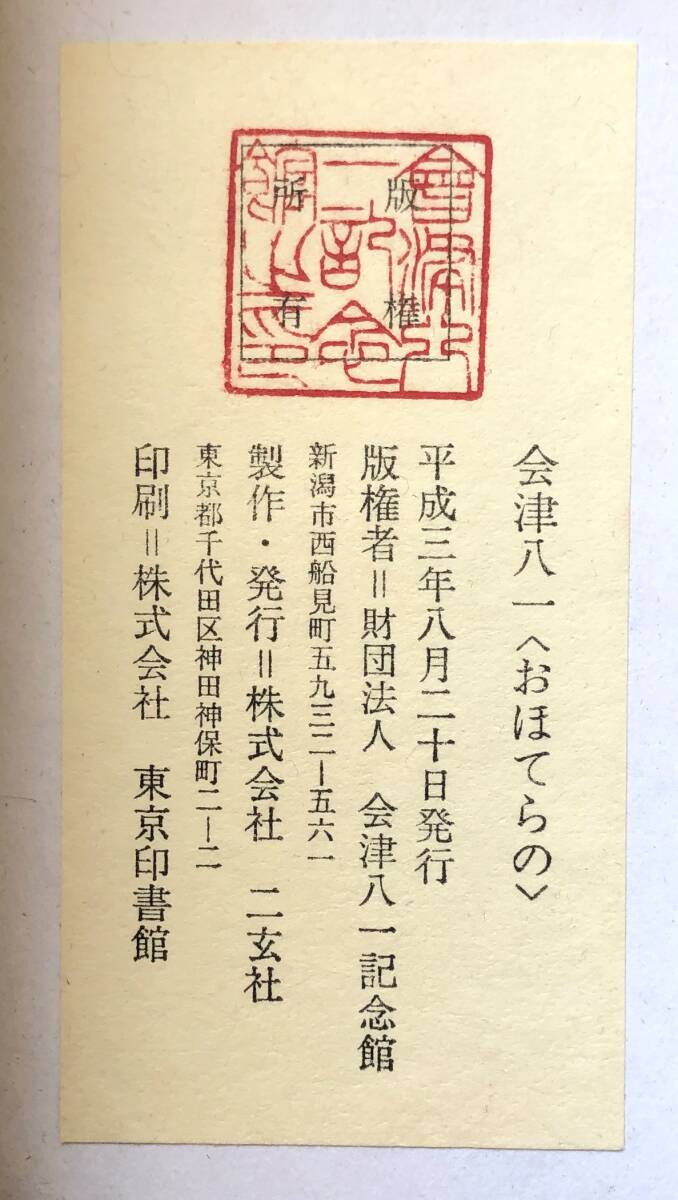 版権
所有
會津八
一記念
館之印
会津八一〈おほてらの〉
平成三年八月二十日発行
版権者＝財団法人　会津八一記念館
新潟市西船見町五九三二ー五六一
製作・発行＝株式会社　二玄社
東京都千代田区神田神保町二ー二
印刷＝株式会社　東京印書館